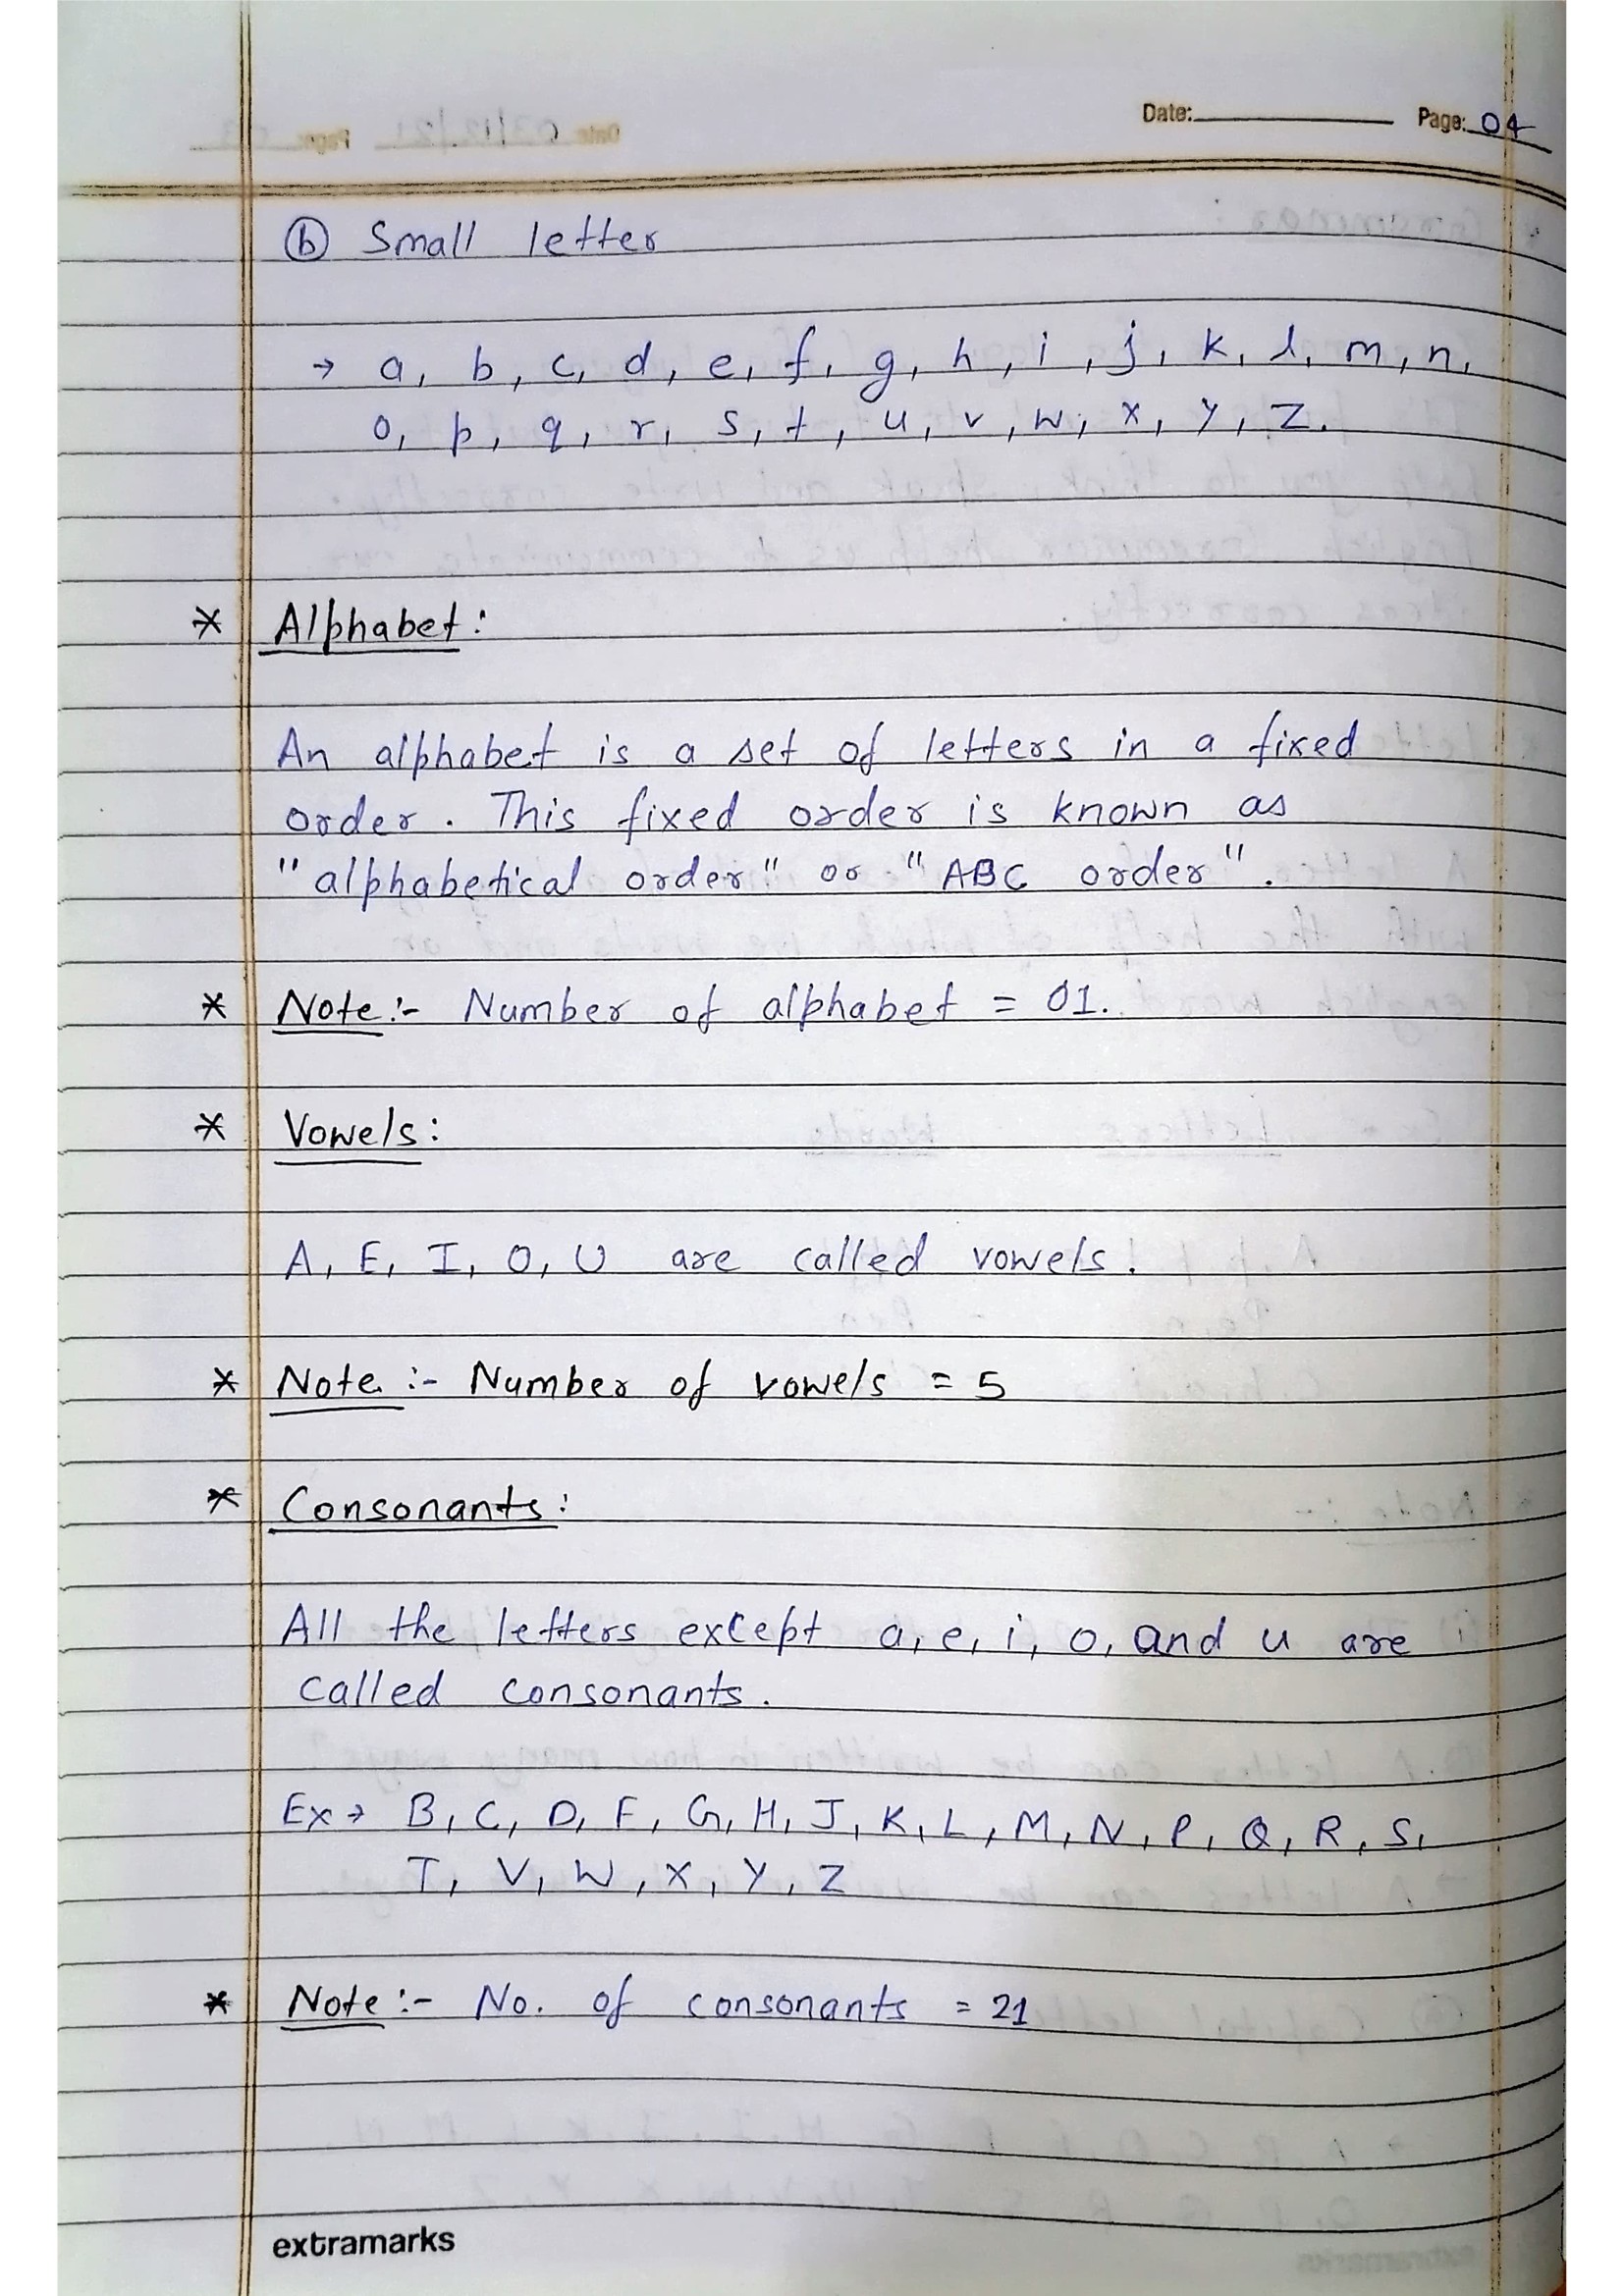 Date: Page: 04
ⓑ Small letter
→ a, b, c, d, e, f, g, h, i, j, k, l, m, n,
o, p, q, r, s, t, u, v, w, x, y, z.
* Alphabet:
An alphabet is a set of letters in a fixed
order. This fixed order is known as
"alphabetical order" or "ABC order".
* Note:- Number of alphabet = 01.
* Vowels:
A, E, I, O, U are called vowels.
* Note:- Number of vowels = 5
* Consonants:
All the letters except a, e, i, o, and u are
called consonants.
Ex → B, C, D, F, G, H, J, K, L, M, N, P, Q, R, S,
T, V, W, X, Y, Z
* Note:- No. of consonants = 21
extramarks